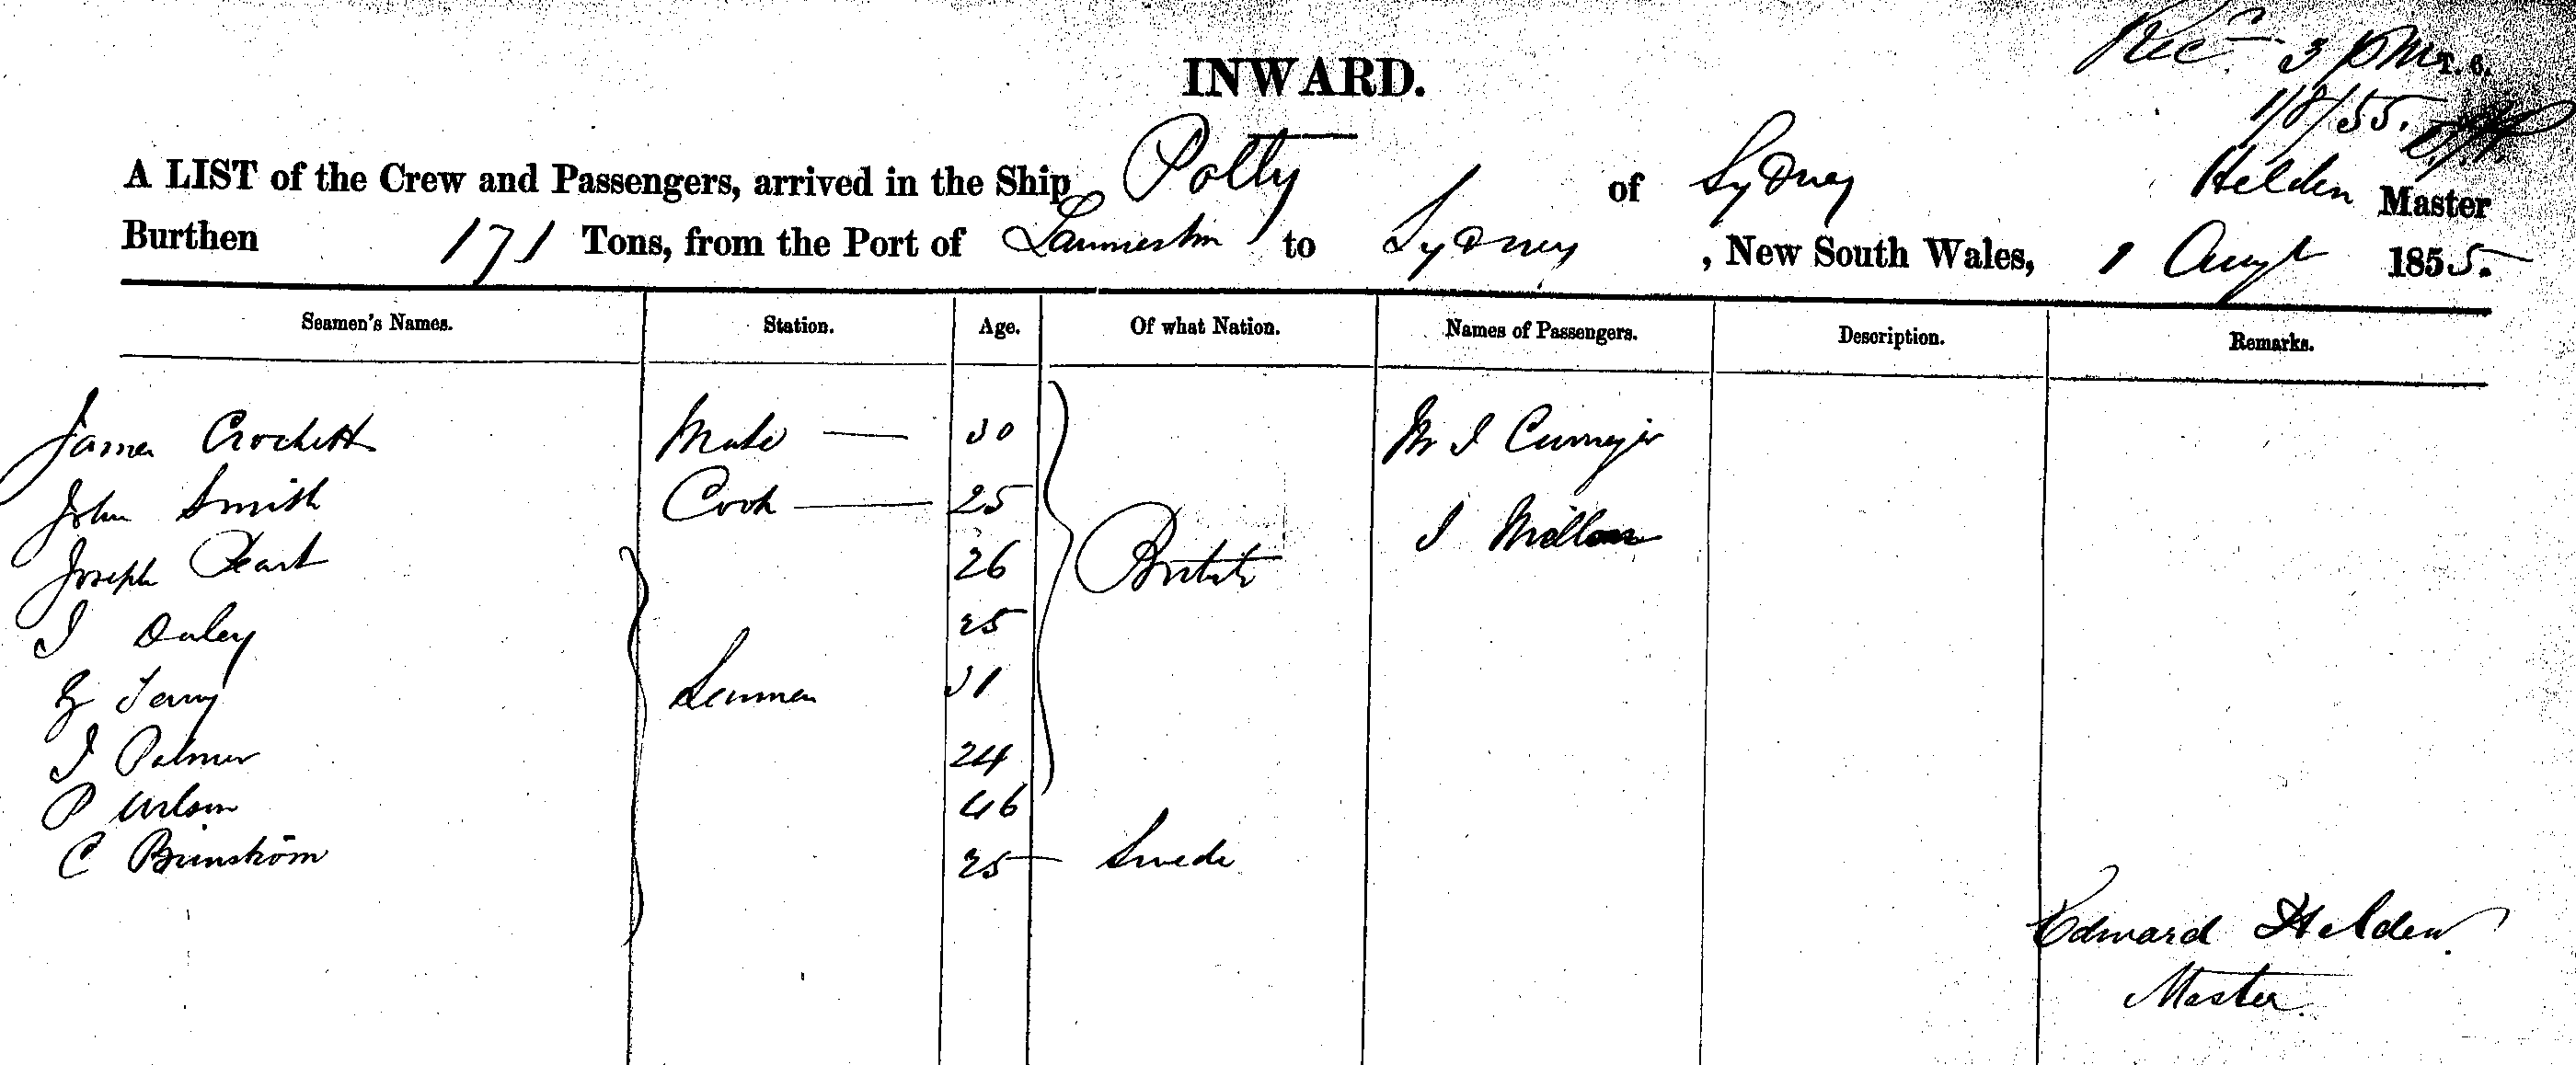 Recd 3 pm
1/8/55.
INWARD.
A LIST of the Crew and Passengers, arrived in the Ship Polly of Sydney Helden Master
Burthen 171 Tons, from the Port of Launceston to Sydney, New South Wales, 1 Augt 1855.
Seamen's Names. Station. Age. Of what Nation. Names of Passengers. Description. Remarks.
James Crockett Mate 30 Mr J
John Smith Cook 25 J
Joseph Peart 26 British
J Daley 25
G Terry Seamen 31
J Palmer 24
P Wilson 46
C Brinström 25 Swede
Edward Helden
Master